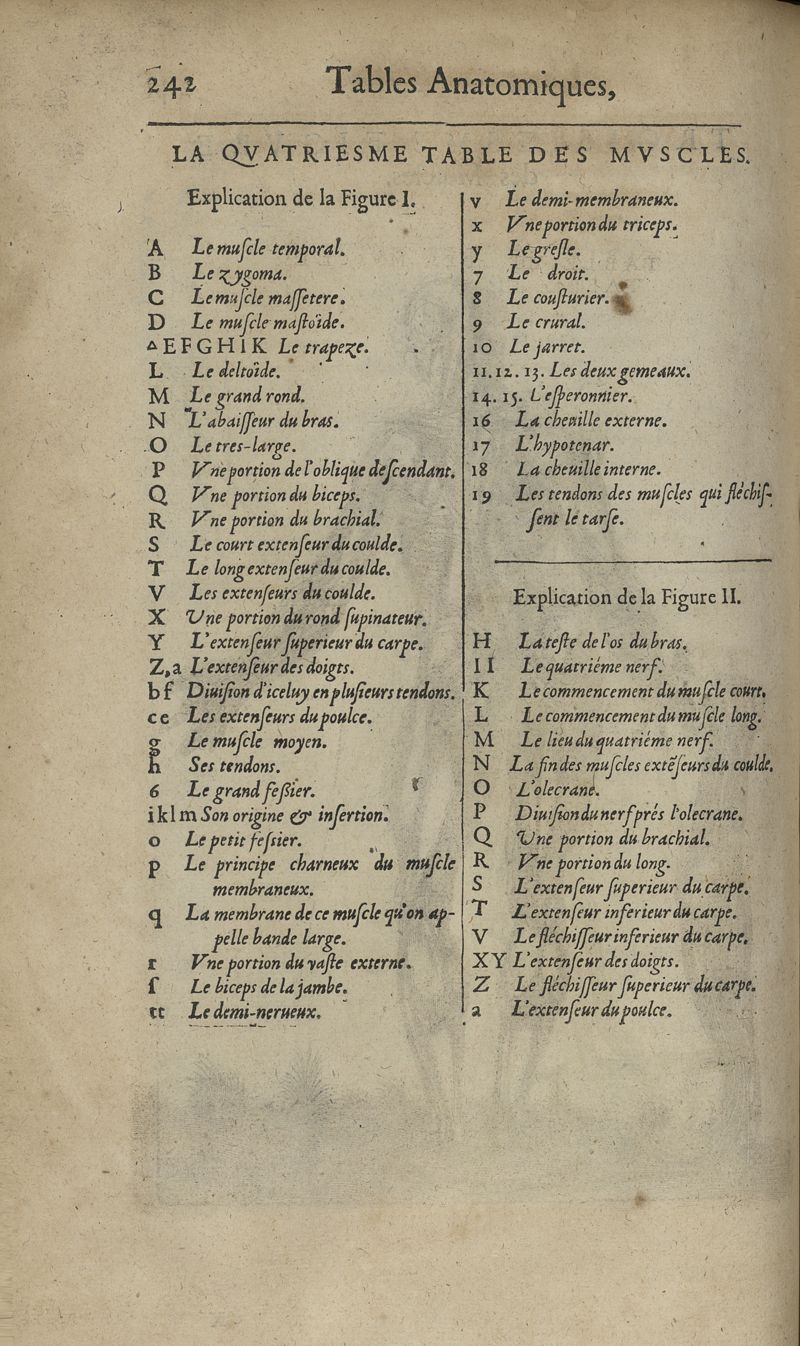 242 Tables Anatomiques,
LA QVATRIESME TABLE DES MVSCLES.
Explication de la Figure I.
A Le muſcle temporal.
B Le zygoma.
C Le muſcle maſſetere.
D Le muſcle maſtoïde.
▵ E F G H I K Le trapeze.
L Le deltoïde.
M Le grand rond.
N L'abaiſſeur du bras.
O Le tres-large.
P Vne portion de l'oblique deſcendant.
Q Vne portion du biceps.
R Vne portion du brachial.
S Le court extenſeur du coulde.
T Le long extenſeur du coulde.
V Les extenſeurs du coulde.
X Vne portion du rond ſupinateur.
Y L'extenſeur ſuperieur du carpe.
Z,a L'extenſeur des doigts.
b f Diuiſion d'iceluy en pluſieurs tendons.
c e Les extenſeurs du poulce.
g Le muſcle moyen.
h Ses tendons.
6 Le grand feßier.
i k l m Son origine & inſertion.
o Le petit feſsier.
p Le principe charneux du muſcle
membraneux.
q La membrane de ce muſcle qu'on ap-
pelle bande large.
r Vne portion du vaſte externe.
ſ Le biceps de la jambe.
tt Le demi-nerueux.
v Le demi-membraneux.
x Vne portion du triceps.
y Le greſle.
7 Le droit.
8 Le couſturier.
9 Le crural.
10 Le jarret.
11. 12. 13. Les deux gemeaux.
14. 15. L'eſperonnier.
16 La cheuille externe.
17 L'hypotenar.
18 La cheuille interne.
19 Les tendons des muſcles qui fléchiſ-
ſent le tarſe.
Explication de la Figure II.
H La teſte de l'os du bras.
I I Le quatriéme nerf.
K Le commencement du muſcle court.
L Le commencement du muſcle long.
M Le lieu du quatriéme nerf.
N La fin des muſcles extẽſeurs du coulde.
O L'olecrane.
P Diuiſion du nerf prés l'olecrane.
Q Vne portion du brachial.
R Vne portion du long.
S L'extenſeur ſuperieur du carpe.
T L'extenſeur inferieur du carpe.
V Le fléchiſſeur inferieur du carpe.
X Y L'extenſeur des doigts.
Z Le fléchiſſeur ſuperieur du carpe.
a L'extenſeur du poulce.